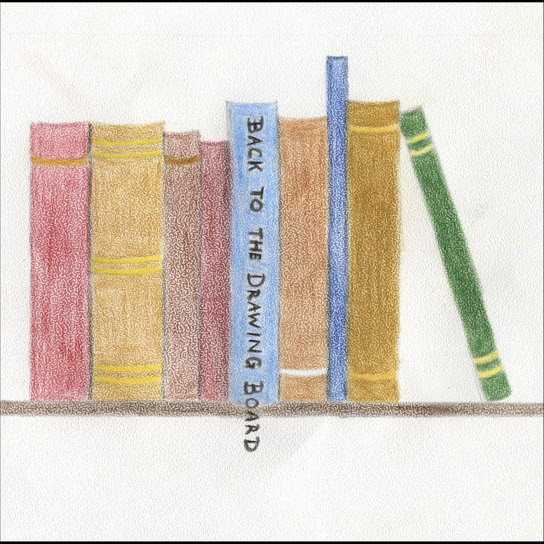 BACK TO THE DRAWING BOARD